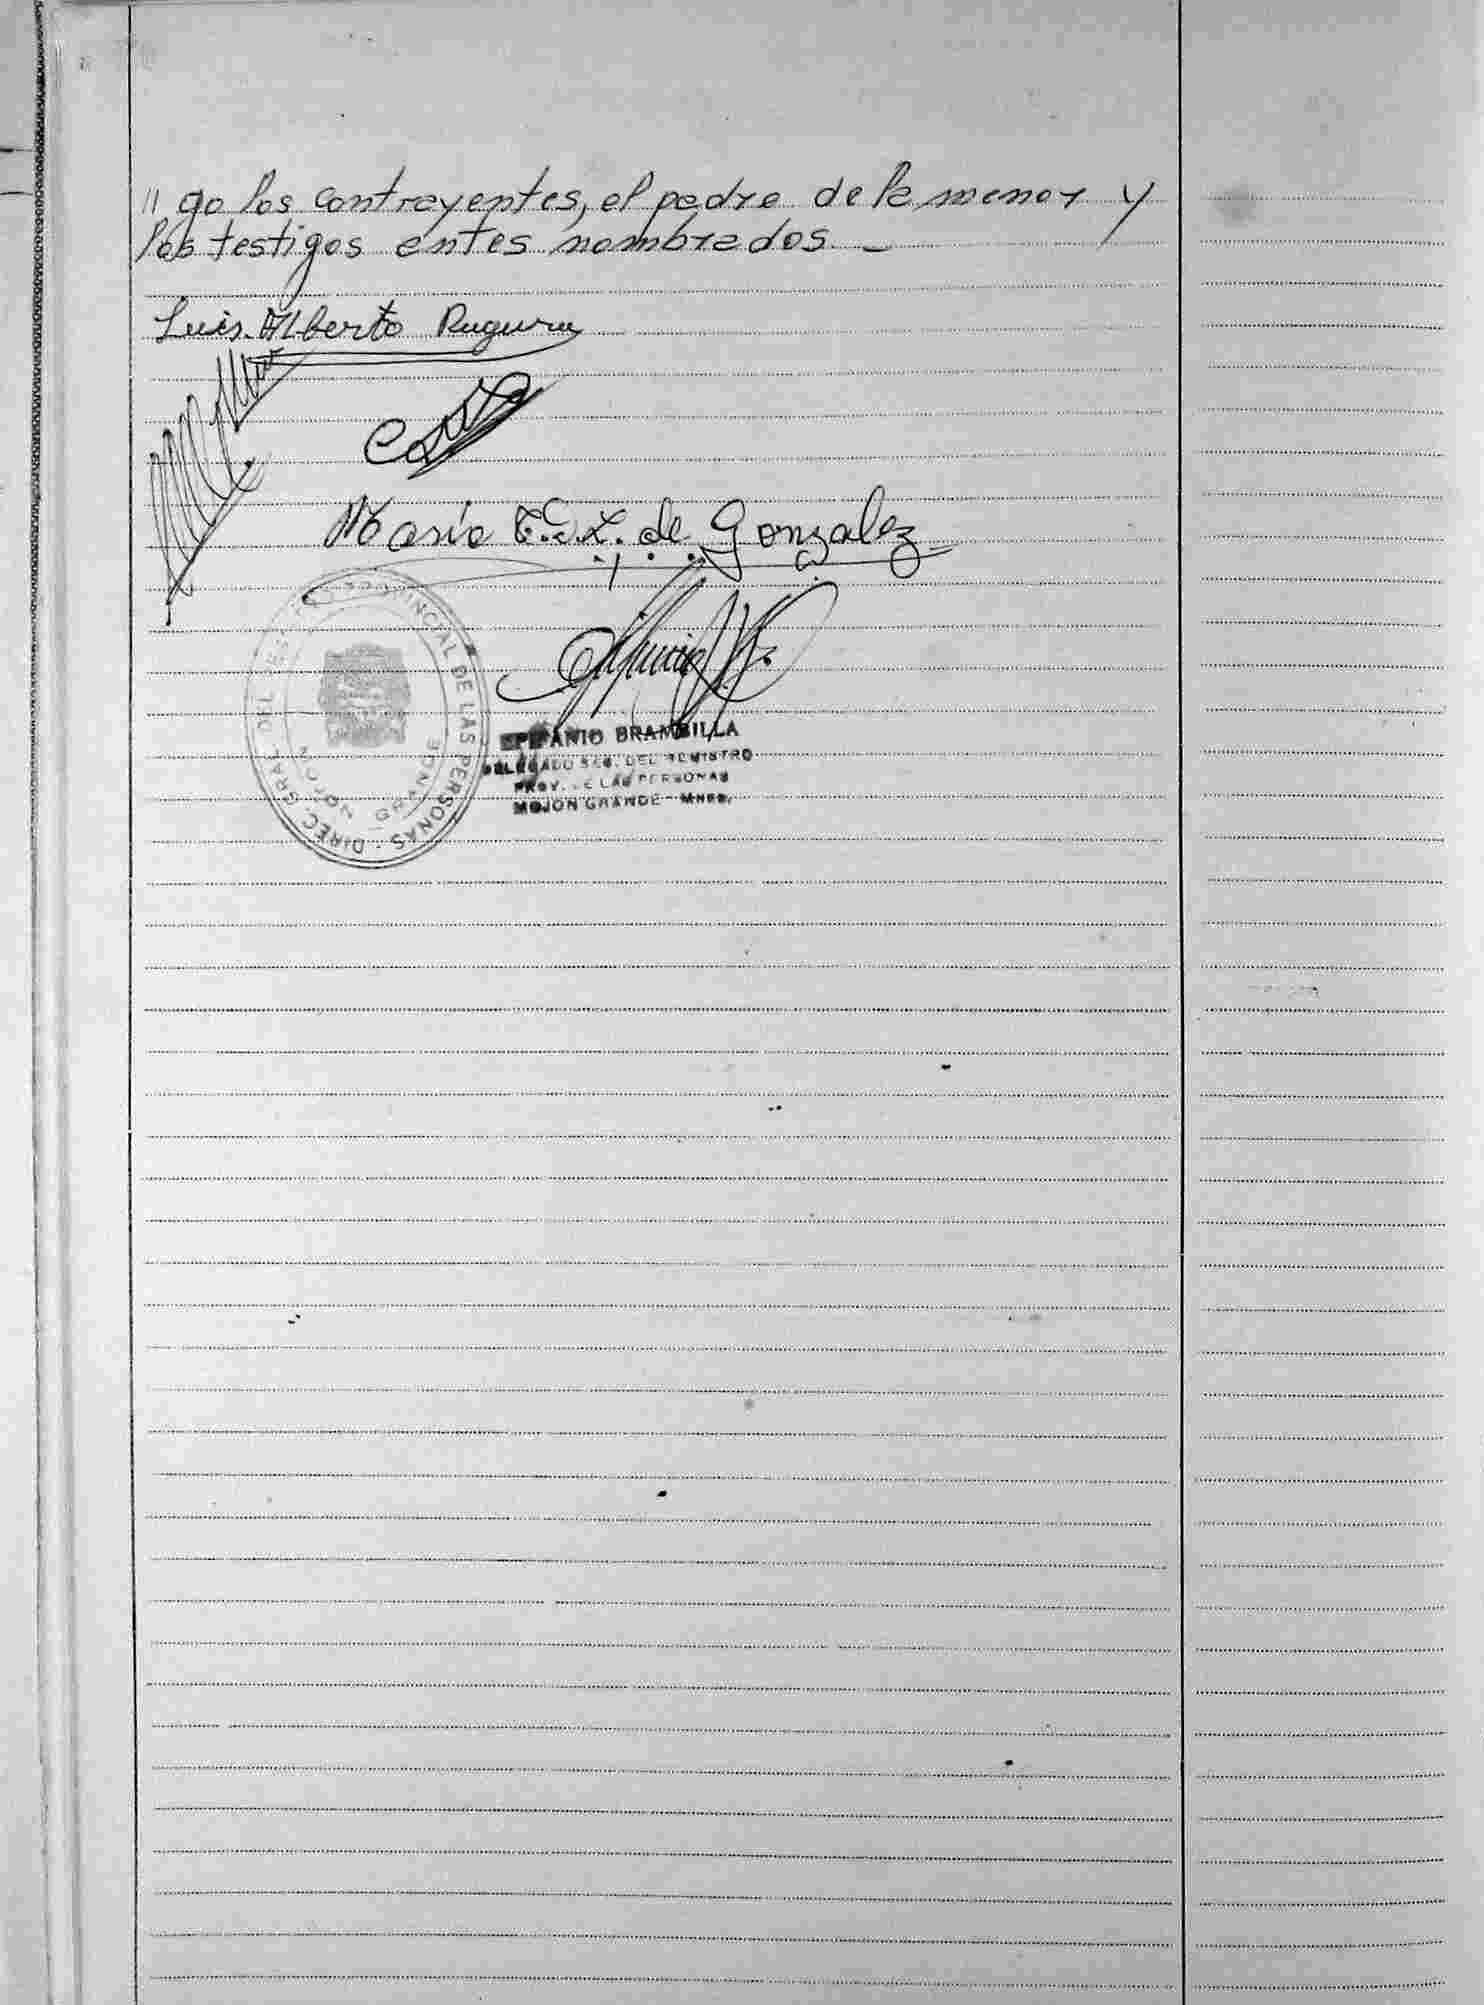 " go los contrayentes, el padre de la menor y
los testigos antes nombrados. _
Luis Alberto
Maria T.G.L. de Gonzalez
DIREC. GRAL. DEL REG. PROVINCIAL DE LAS PERSONAS
MOJON GRANDE
EPIFANIO BRAMBILLA
DELEGADO SEC. DEL REGISTRO
PROV. DE LAS PERSONAS
MOJON GRANDE - MNES.